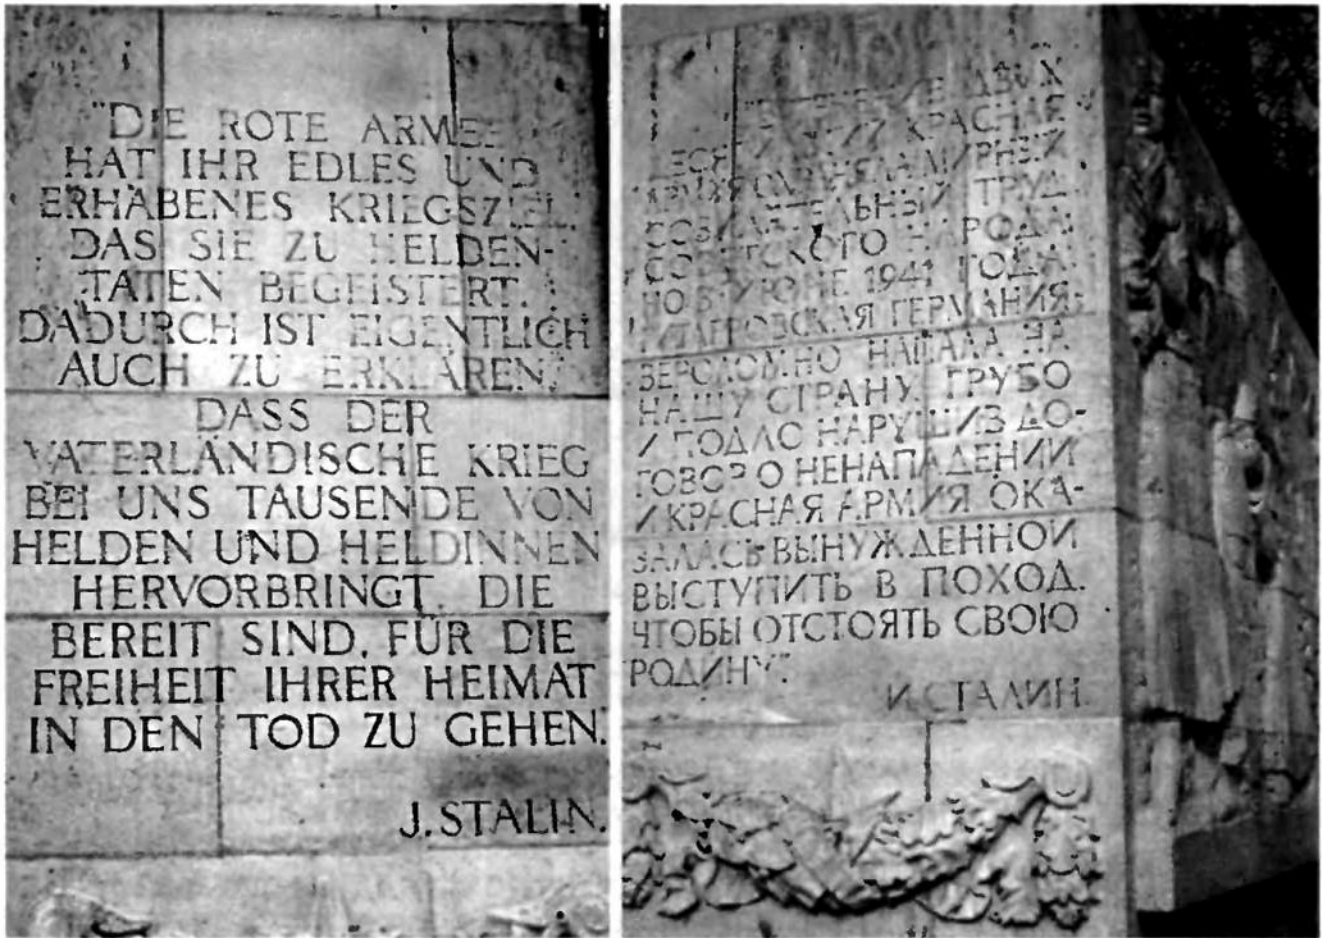 "DIE ROTE ARMEE
HAT IHR EDLES UND
ERHABENES KRIEGSZIEL,
DAS SIE ZU HELDEN-
TATEN BEGEISTERT.
DADURCH IST EIGENTLICH
AUCH ZU ERKLÄREN,
DASS DER
VATERLÄNDISCHE KRIEG
BEI UNS TAUSENDE VON
HELDEN UND HELDINNEN
HERVORBRINGT, DIE
BEREIT SIND, FÜR DIE
FREIHEIT IHRER HEIMAT
IN DEN TOD ZU GEHEN."
J. STALIN.
ДВУХ
КРАСНАЯ
АРМИЯ ОХРАНЯЛА МИРНЫЙ
СОЗИДАТЕЛЬНЫЙ ТРУД
СОВЕТСКОГО НАРОДА.
НО В ИЮНЕ 1941 ГОДА
ГИТЛЕРОВСКАЯ ГЕРМАНИЯ
ВЕРОЛОМНО НАПАЛА НА
НАШУ СТРАНУ, ГРУБО
И ПОДЛО НАРУШИВ ДО-
ГОВОР О НЕНАПАДЕНИИ
И КРАСНАЯ АРМИЯ ОКА-
ЗАЛАСЬ ВЫНУЖДЕННОЙ
ВЫСТУПИТЬ В ПОХОД,
ЧТОБЫ ОТСТОЯТЬ СВОЮ
РОДИНУ".
И. СТАЛИН.